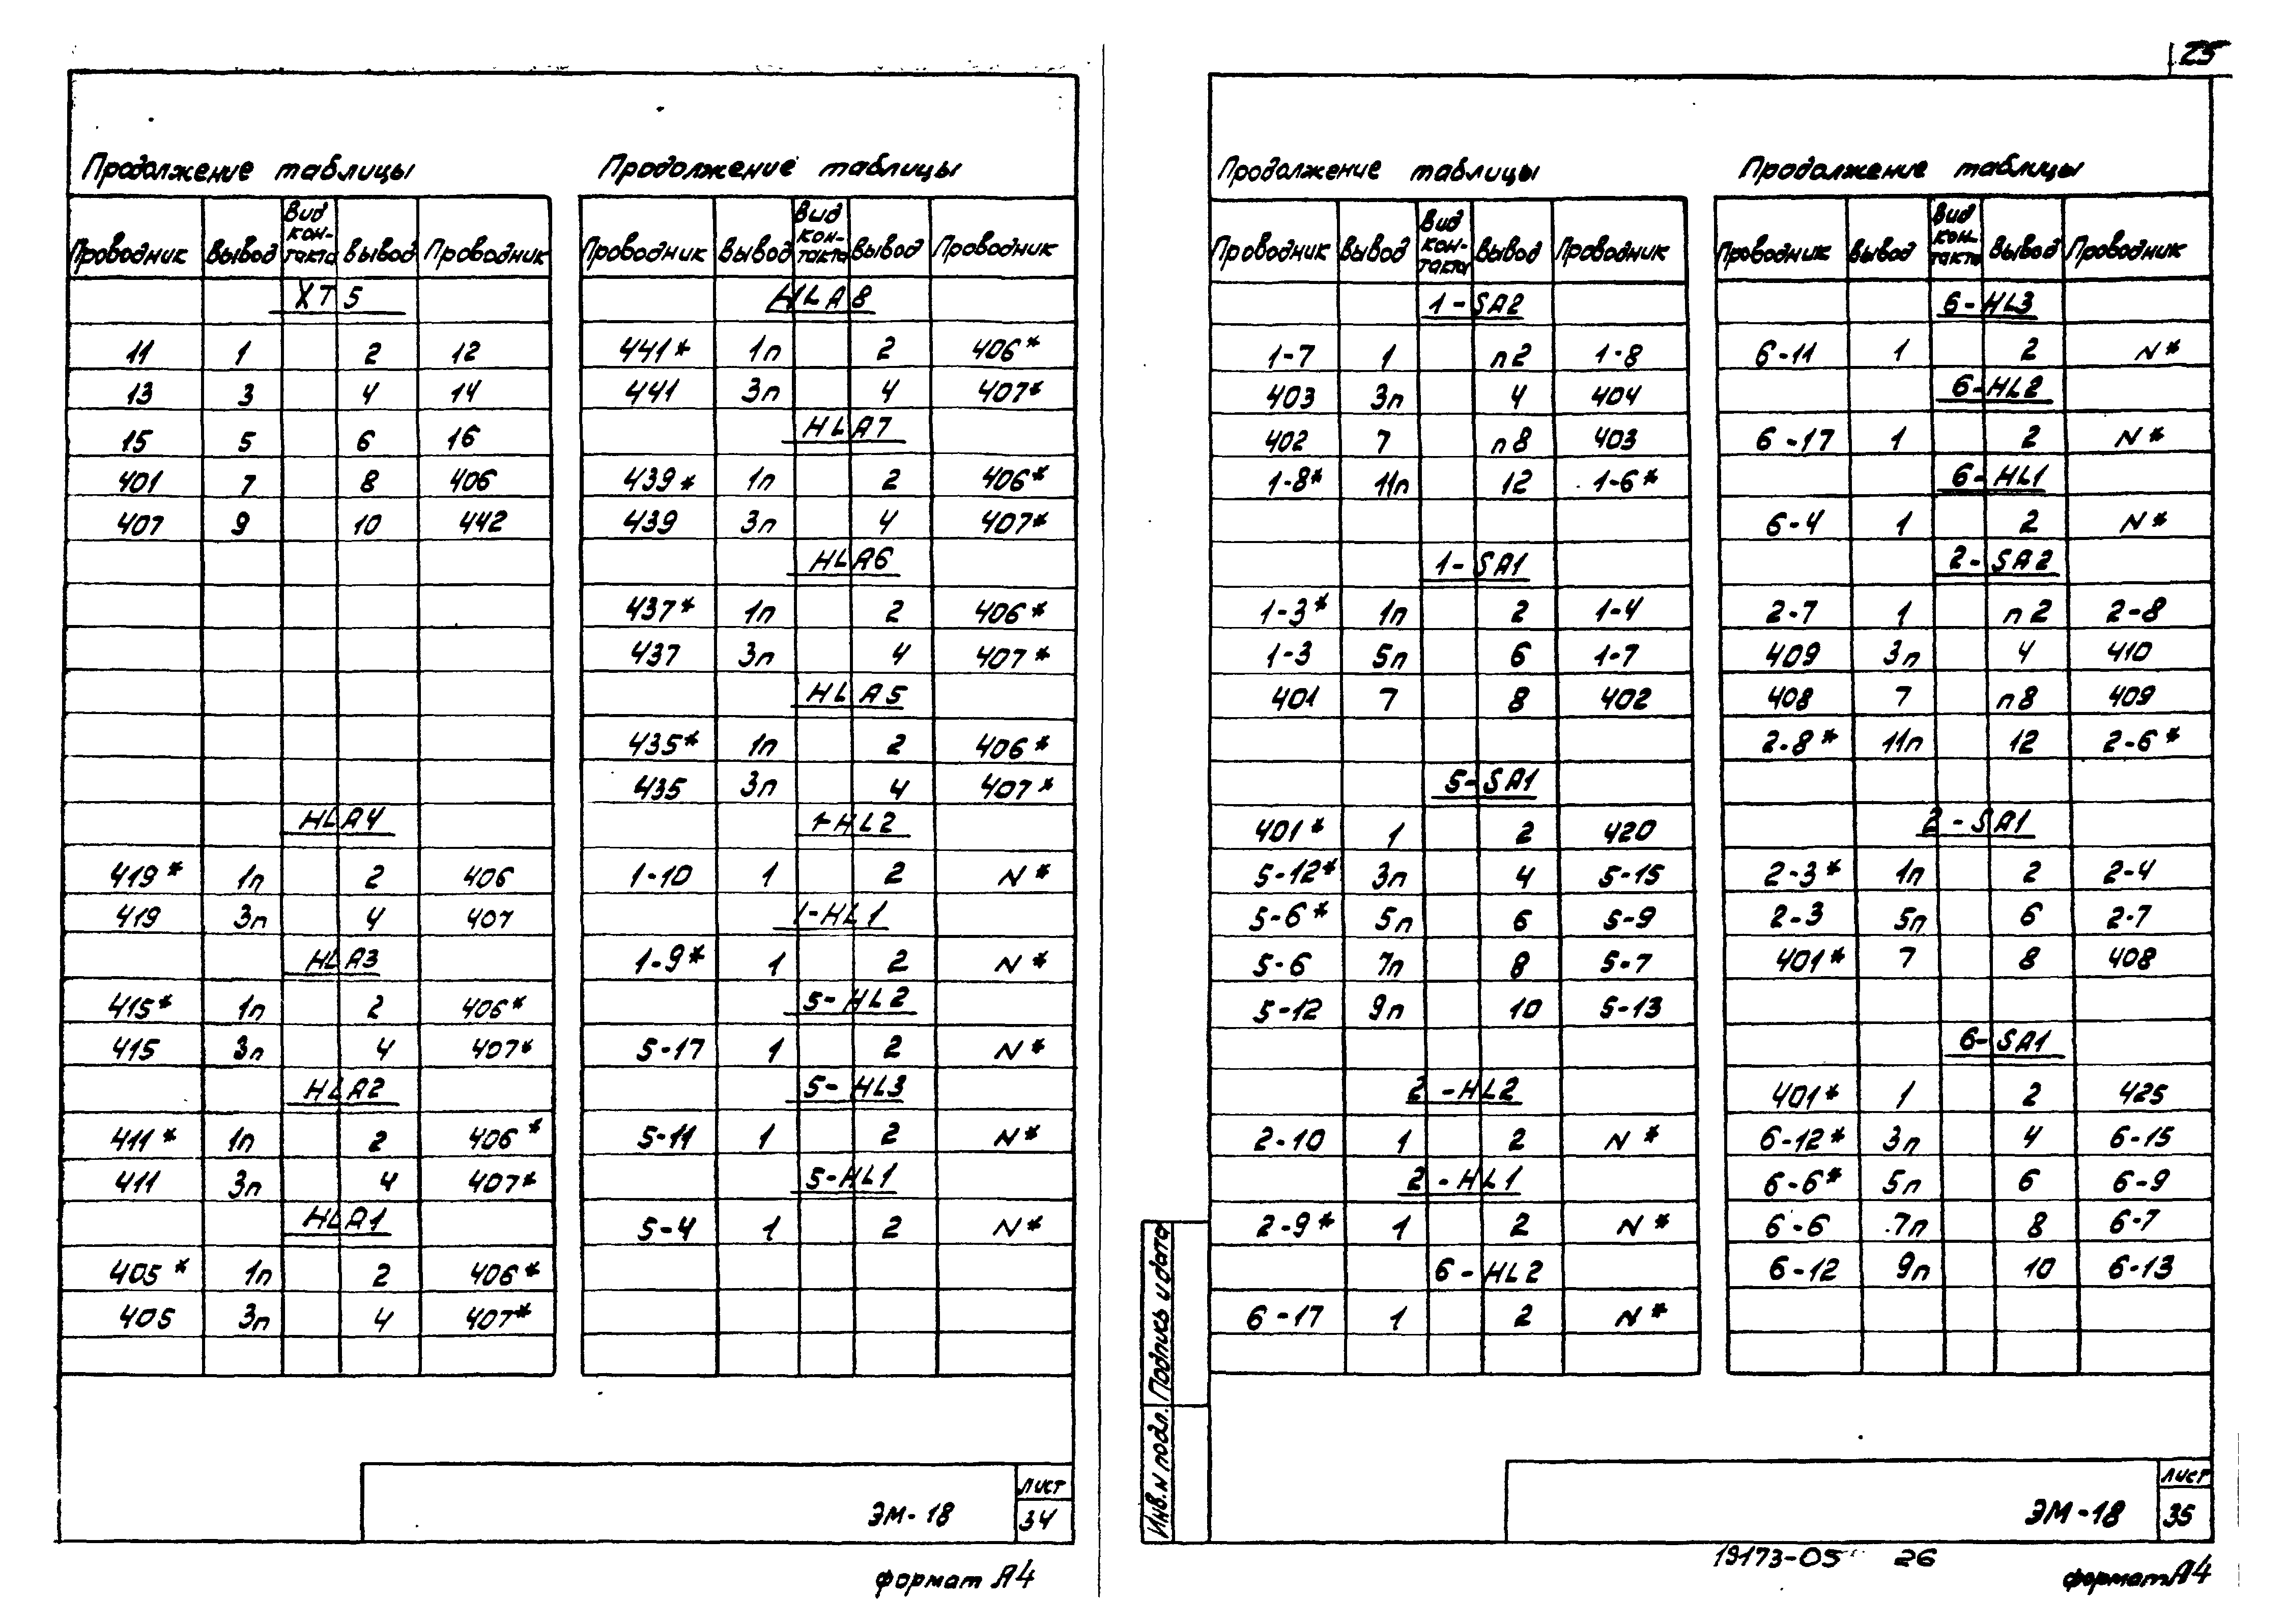 25
Продолжение таблицы
Проводник Вывод Вид кон-такта Вывод Проводник
XT5
11 1 2 12
13 3 4 14
15 5 6 16
401 7 8 406
407 9 10 442
HLA4
419* 1п 2 406
419 3п 4 407
HLA3
415* 1п 2 406*
415 3п 4 407*
HLA2
411* 1п 2 406*
411 3п 4 407*
HLA1
405* 1п 2 406*
405 3п 4 407*
Продолжение таблицы
Проводник Вывод Вид кон-такта Вывод Проводник
HLA8
441* 1п 2 406*
441 3п 4 407*
HLA7
439* 1п 2 406*
439 3п 4 407*
HLA6
437* 1п 2 406*
437 3п 4 407*
HLA5
435* 1п 2 406*
435 3п 4 407*
1-HL2
1-10 1 2 N*
1-HL1
1-9* 1 2 N*
5-HL2
5-17 1 2 N*
5-HL3
5-11 1 2 N*
5-HL1
5-4 1 2 N*
ЭМ-18
лист
34
формат А4
Продолжение таблицы
Проводник Вывод Вид кон-такта Вывод Проводник
1-SA2
1-7 1 п2 1-8
403 3п 4 404
402 7 п8 403
1-8* 11п 12 1-6*
1-SA1
1-3* 1п 2 1-4
1-3 5п 6 1-7
401 7 8 402
5-SA1
401* 1 2 420
5-12* 3п 4 5-15
5-6* 5п 6 5-9
5-6 7п 8 5-7
5-12 9п 10 5-13
2-HL2
2-10 1 2 N*
2-HL1
2-9* 1 2 N*
6-HL2
6-17 1 2 N*
Продолжение таблицы
Проводник Вывод Вид кон-такта Вывод Проводник
6-HL3
6-11 1 2 N*
6-HL2
6-17 1 2 N*
6-HL1
6-4 1 2 N*
2-SA2
2-7 1 п2 2-8
409 3п 4 410
408 7 п8 409
2-8* 11п 12 2-6*
2-SA1
2-3* 1п 2 2-4
2-3 5п 6 2-7
401* 7 8 408
6-SA1
401* 1 2 425
6-12* 3п 4 6-15
6-6* 5п 6 6-9
6-6 7п 8 6-7
6-12 9п 10 6-13
Инв. N подл. Подпись и дата
ЭМ-18
лист
35
19173-05 26
формат А4